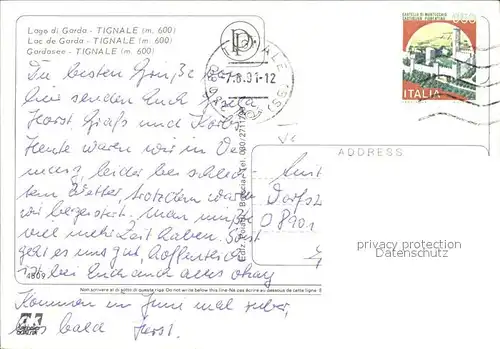 Lago di Garda - TIGNALE (m. 600)
Lac de Garda - TIGNALE (m. 600)
Gardasee - TIGNALE (m. 600)
CASTELLO DI MONTECCHIO
CASTIGLION FIORENTINO
650
ITALIA
TIGNALE
7.6.91-12
Die besten Grüße von
hier senden Euch
Horst, und
Heute waren wir in Ve-
nedig, leider bei schlech-
tem Wetter, trotzdem waren
wir begeistert, man müßte
viel mehr Zeit haben. Sonst
geht es uns gut, hoffentlich
ist bei Euch auch alles okay
Kommen im Juni mal rüber,
bis bald Horst.
ADDRESS
Amt
Dorfstr
O 8901
privacy protection
Datenschutz
4809
Non scrivere al di sotto di questa riga - Do not write below this line - Ne pas écrire au dessous de cette ligne